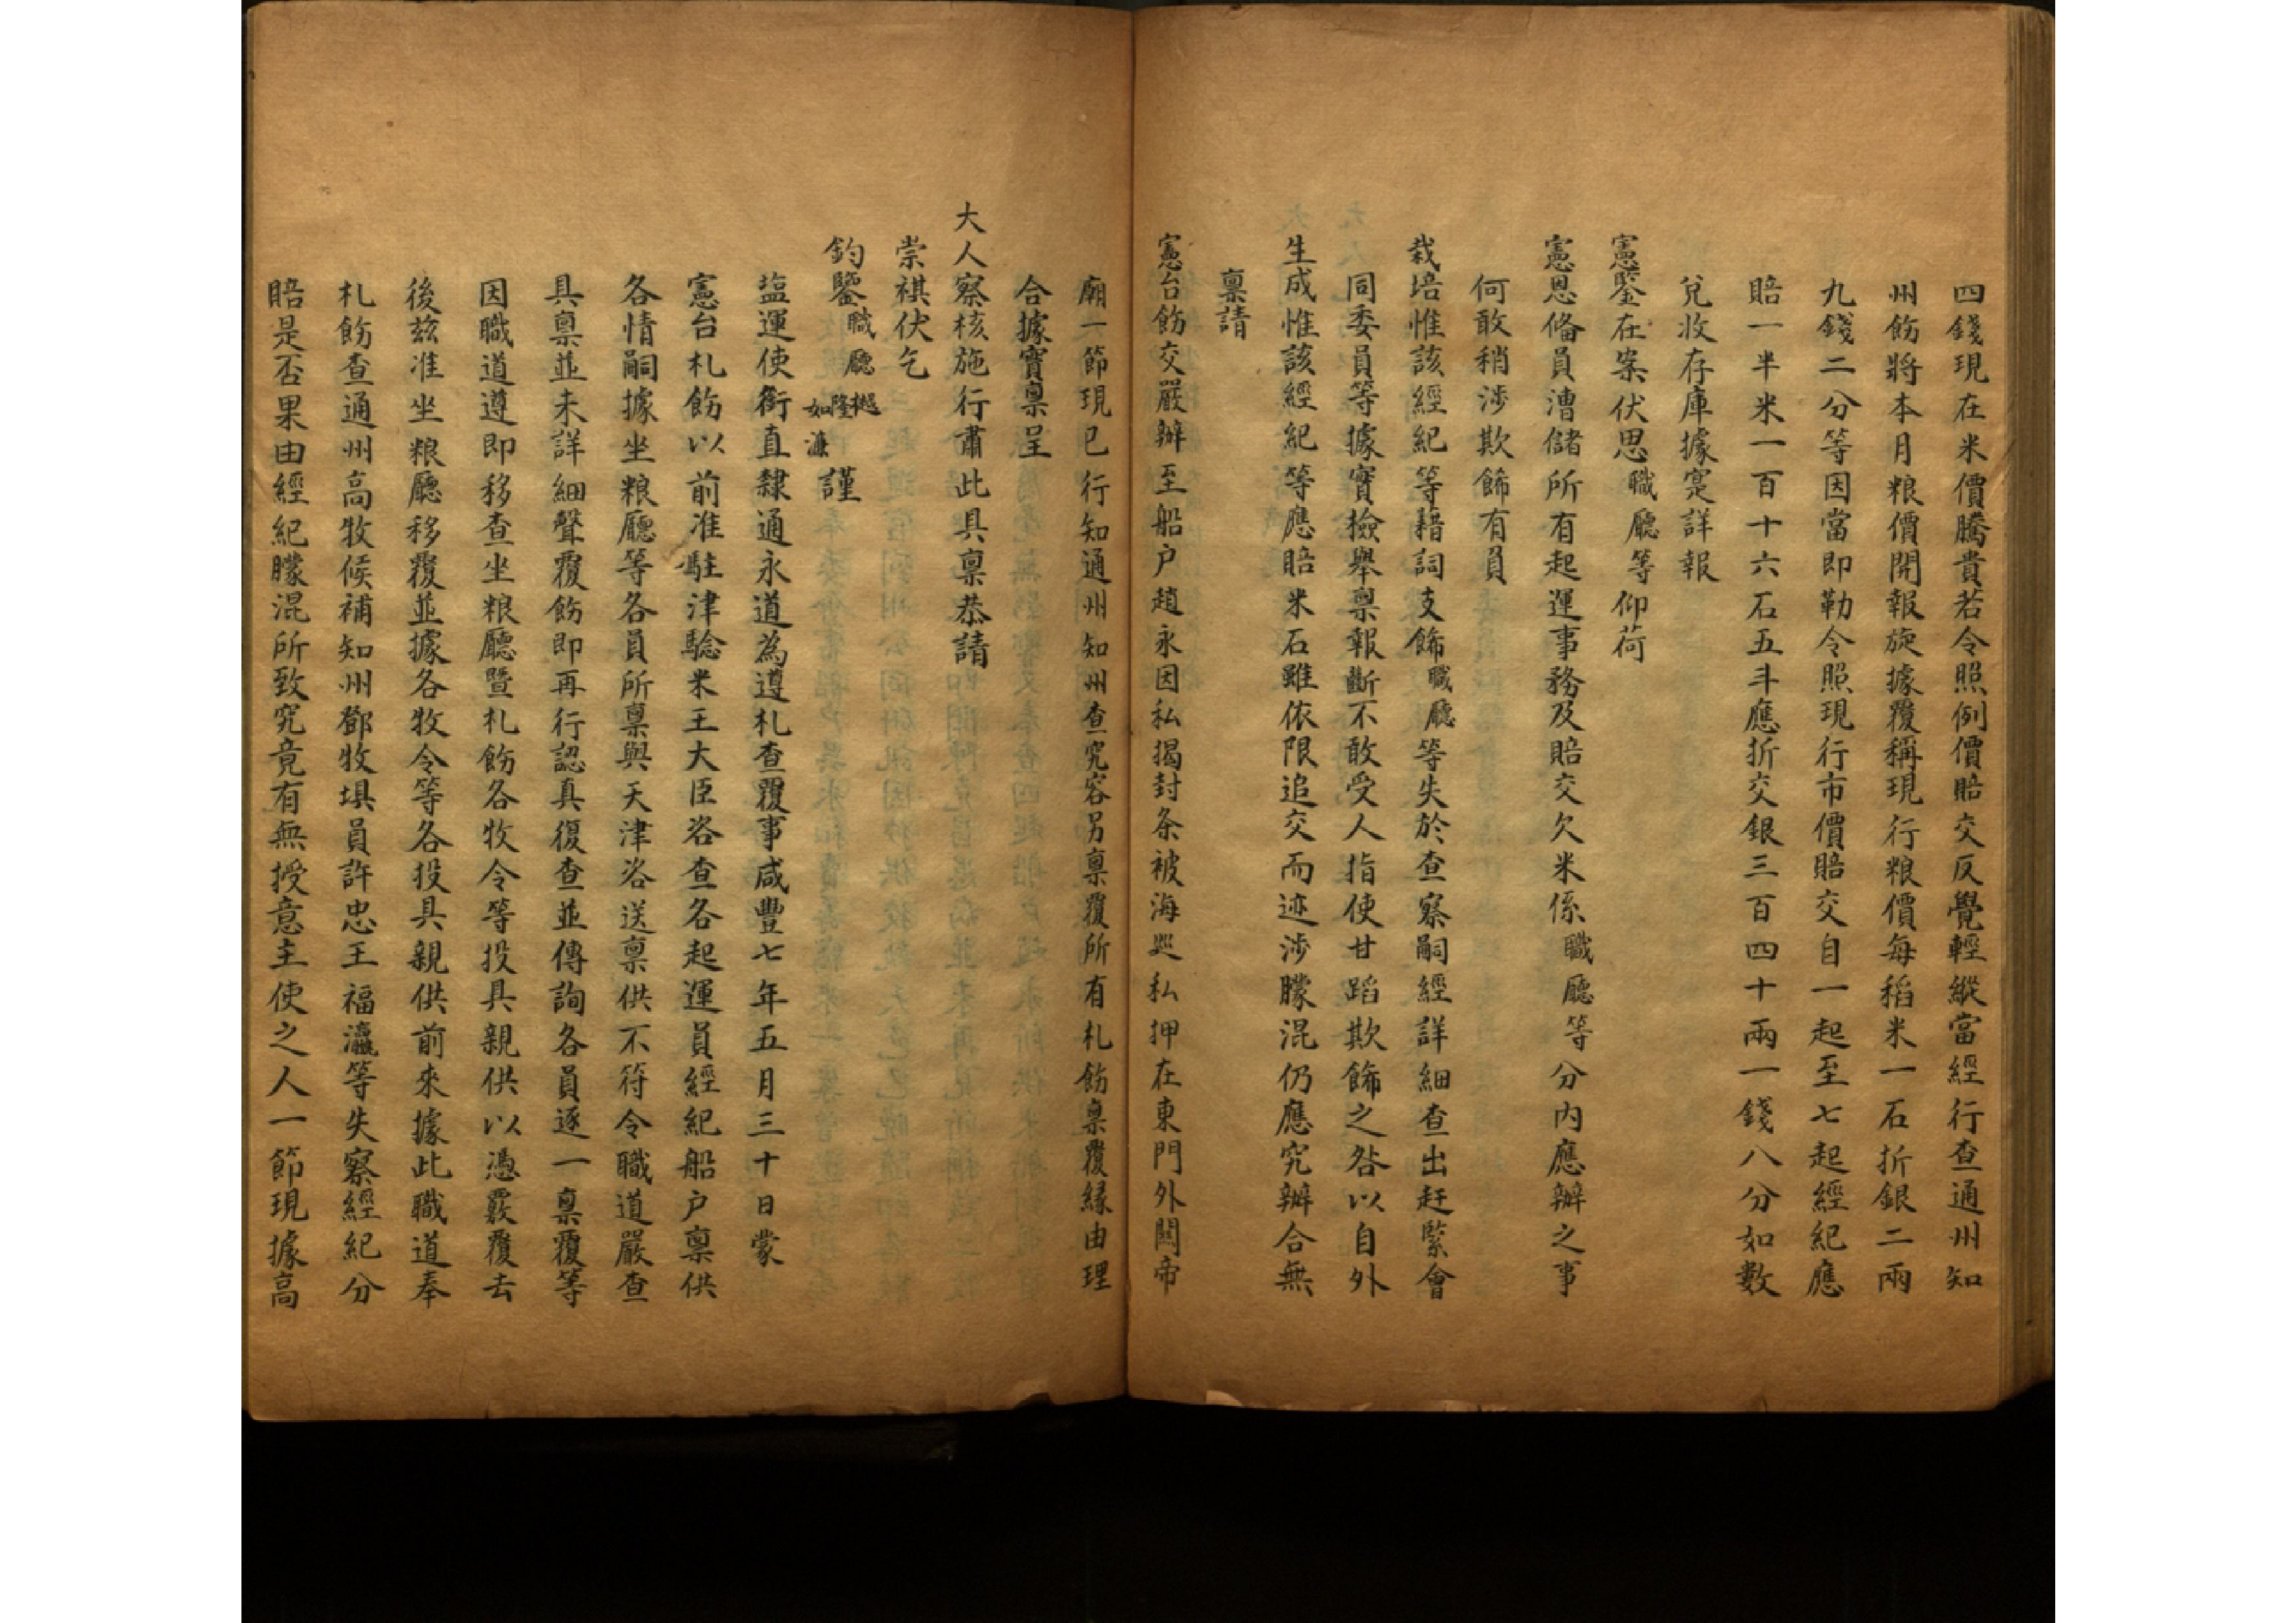 四錢現在米價騰貴若令照例價賠交反覺輕縱當經行查通州知
州飭將本月粮價開報旋據覆稱現行粮價每稻米一石折銀二兩
九錢二分等因當即勒令照現行市價賠交自一起至七起經紀應
賠一半米一百十六石五斗應折交銀三百四十兩一錢八分如數
兌收存庫據寔詳報
憲鑒在案伏思職廳等仰荷
憲恩俻員漕儲所有起運事務及賠交欠米係職廳等分內應辦之事
何敢稍涉欺飾有員
栽培惟該經紀等藉詞支飾職廳等失於查察嗣經詳細查出赶緊會
同委員等據實撿舉禀報斷不敢受人指使甘蹈欺飾之咎以自外
生成惟該經紀等應賠米石雖依限追交而迹涉朦混仍應究辦合無
禀請
憲台飭交嚴辦至船户趙永因私揭封条被海廵私押在東門外關帝
廟一節現已行知通州知州查究容另禀覆所有札飭禀覆緣由理
合據實禀呈
大人察核施行肅此具禀恭請
崇祺伏乞
鈞鑒職廳樾隆如濂謹
塩運使銜直隸通永道為遵札查覆事咸豐七年五月三十日蒙
憲台札飭以前准駐津騐米王大臣咨查各起運員經紀船户禀供
各情嗣據坐粮廳等各員所禀與天津咨送禀供不符令職道嚴查
具禀並未詳細聲覆飭即再行認真復查並傳詢各員逐一禀覆等
因職道遵即移查坐粮廳暨札飭各牧令等投具親供以憑覈覆去
後兹准坐粮廳移覆並據各牧令等各投具親供前來據此職道奉
札飭查通州高牧候補知州鄧牧埧員許忠王福瀛等失察經紀分
賠是否果由經紀朦混所致究竟有無授意主使之人一節現據高